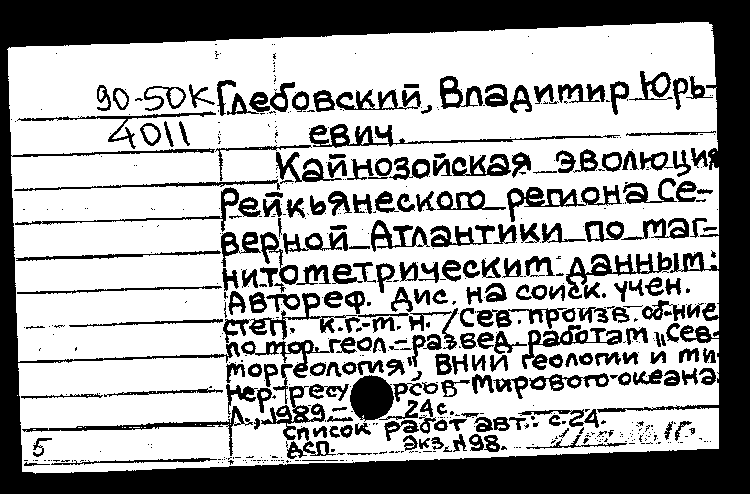 90-50К Глебовский, Владимир Юрь-
4011 евич.
Кайнозойская эволюция
Рейкьянеского региона Се-
верной Атлантики по маг-
нитометрическим данным:
Автореф. дис. на соиск. учен.
степ. к.г.-м.н. /Сев. произв. об-ние
по мор. геол.-развед. работам „Сев-
моргеология", ВНИИ геологии и ми-
нер. ресурсов Мирового океана.
Л., 1989.- 24с.
Список работ авт.: с.24.
5 ДСП. Экз. №98.